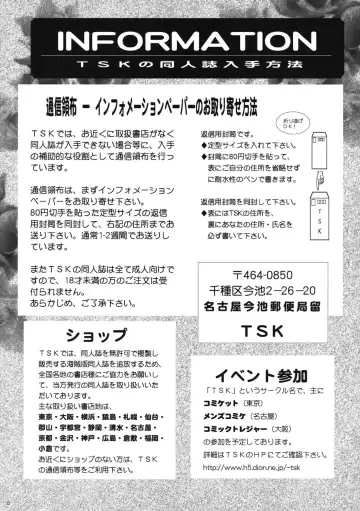 INFORMATION
TSKの同人誌入手方法
通信頒布 ー インフォメーションペーパーのお取り寄せ方法
TSKでは、お近くに取扱書店がなく
同人誌が入手できない場合等に、入手
の補助的な役割として通信頒布を行っ
ています。
通信頒布は、まずインフォメーション
ペーパーをお取り寄せ下さい。
80円切手を貼った定型サイズの返信
用封筒を同封して、右記の住所までお
送り下さい。通常1-2週間でお送りし
ています。
またTSKの同人誌は全て成人向けで
すので、18才未満の方のご注文は受
付られません。
あらかじめ、ご了承下さい。
返信用封筒です。
◆定型サイズを入れて下さい。
◆封筒に80円切手を貼って、
表にご自分の住所を省略せず
に耐水性のペンで書きます。
折り曲げ
OK!
返信用封筒を同封して下さい。
◆表にはTSKの住所を、
裏にあなたの住所・氏名を
必ず書いて下さい。
TSK
〒464-0850
千種区今池2-26-20
名古屋今池郵便局留
TSK
ショップ
TSKでは、同人誌を無許可で複製し
販売する海賊版同人誌を追放するため、
全国各地の書店様にご協力をお願いし
て、当方発行の同人誌を取り扱いいた
だいております。
主な取り扱い書店地は、
東京・大阪・横浜・徳島・札幌・仙台・
郡山・宇都宮・静岡・清水・名古屋・
京都・金沢・神戸・広島・倉敷・福岡・
小倉です。
お近くにショップのない方は、TSK
の通信頒布等をご利用下さい。
イベント参加
「TSK」というサークル名で、主に
コミケット(東京)
メンズコミケ(名古屋)
コミックトレジャー(大阪)
の参加を予定しております。
詳細はTSKのHPにてご確認下さい。
http://www.h5.dion.ne.jp/~tsk